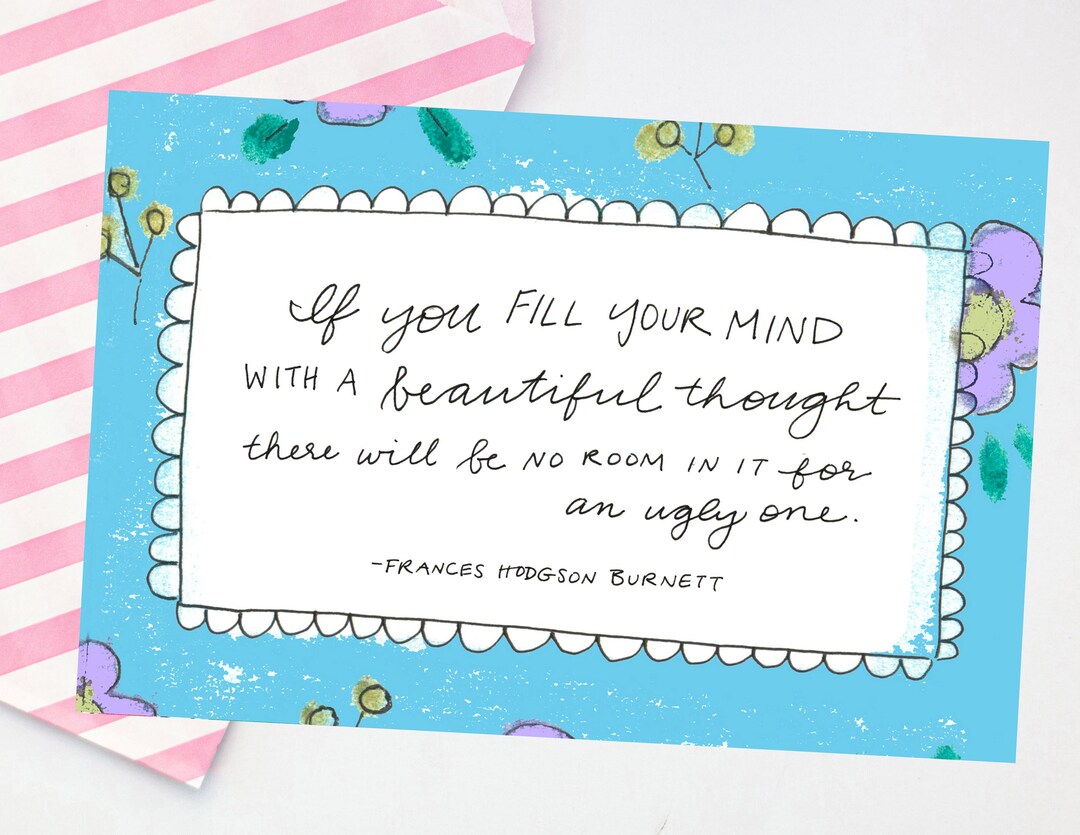 If you FILL YOUR MIND
WITH A beautiful thought
there will be NO ROOM IN IT for
an ugly one.
-FRANCES HODGSON BURNETT